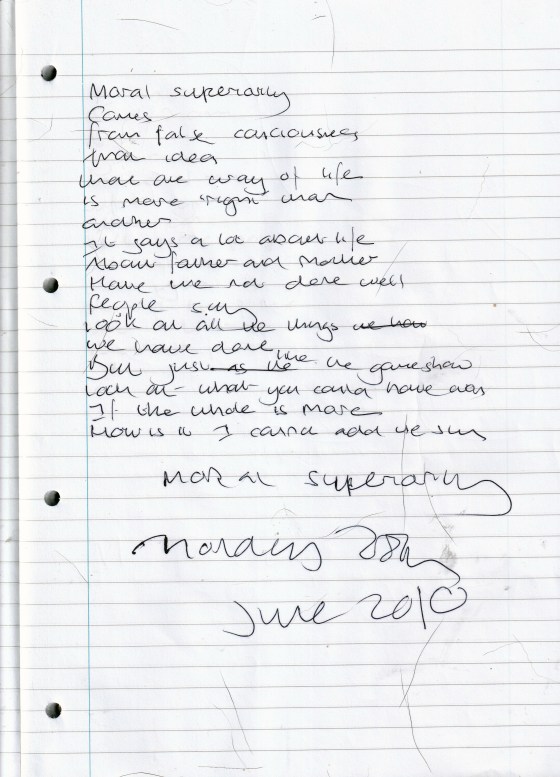 Moral superarity
Comes
from false conciousness
that idea
that one way of life
is more "right" than
another
It says a lot about life
About father and mother
Have we not done well
People say
look at all the things we have
we have done
But just as the like the gameshow
look at what you could have won
If the whole is more
How is it I cannot add the sum
Moral superarity
Monday 28th
June 2010